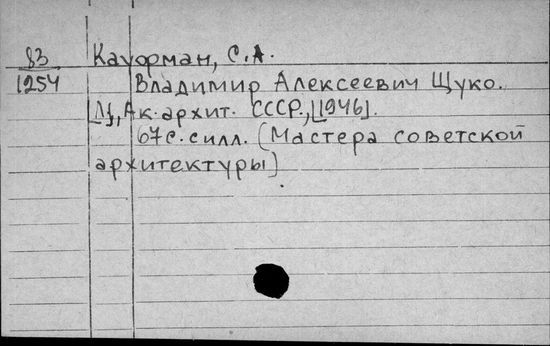 83
1254
Кауфман, С.А.
Владимир Алексеевич Щуко.
[М], Ак. архит. СССР, [1946].
67с. с илл. (Мастера советской
архитектуры)